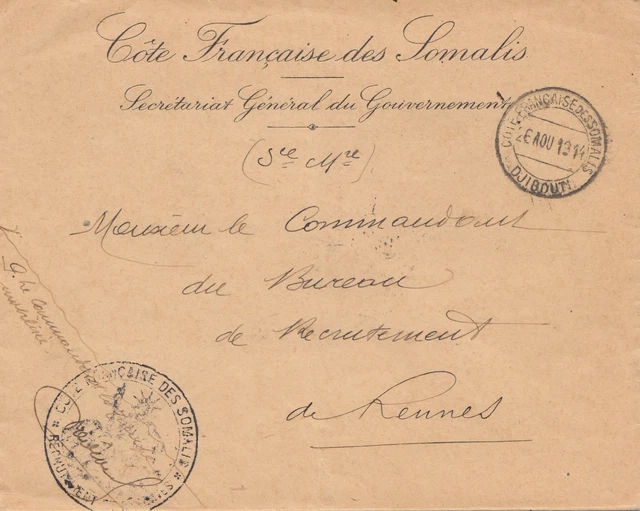 Côte Française des Somalis
Secrétariat Général du Gouvernement
(Sce Mre)
CÔTE FRANÇAISE DES SOMALIS
26 AOU 1914
DJIBOUTI
Monsieur le Commandant
du Bureau
de Recrutement
de Rennes
Le Commandant
CÔTE FRANÇAISE DES SOMALIS